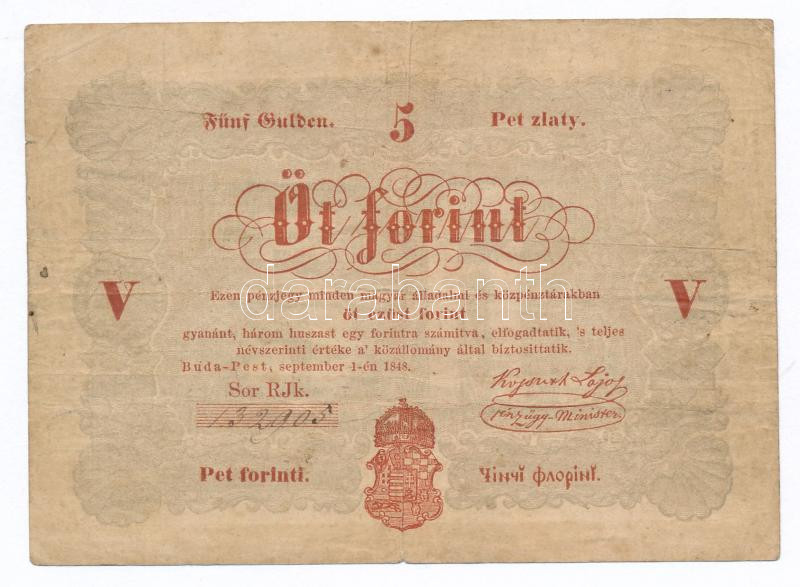 Fünf Gulden. 5 Pet zlaty.
Öt forint
V V
Ezen pénzjegy minden magyar álladalmi és közpénztárakban
öt ezüst forint
gyanánt, három huszast egy forintra számitva, elfogadtatik, 's teljes
névszerinti értéke a' közállomány által biztosittatik.
Buda-Pest, september 1-én 1848.
Sor RJk. Kossuth Lajos
132905 pénzügy-Minister
Pet forinti. Чінчĭ флорінĭ.
darabanth